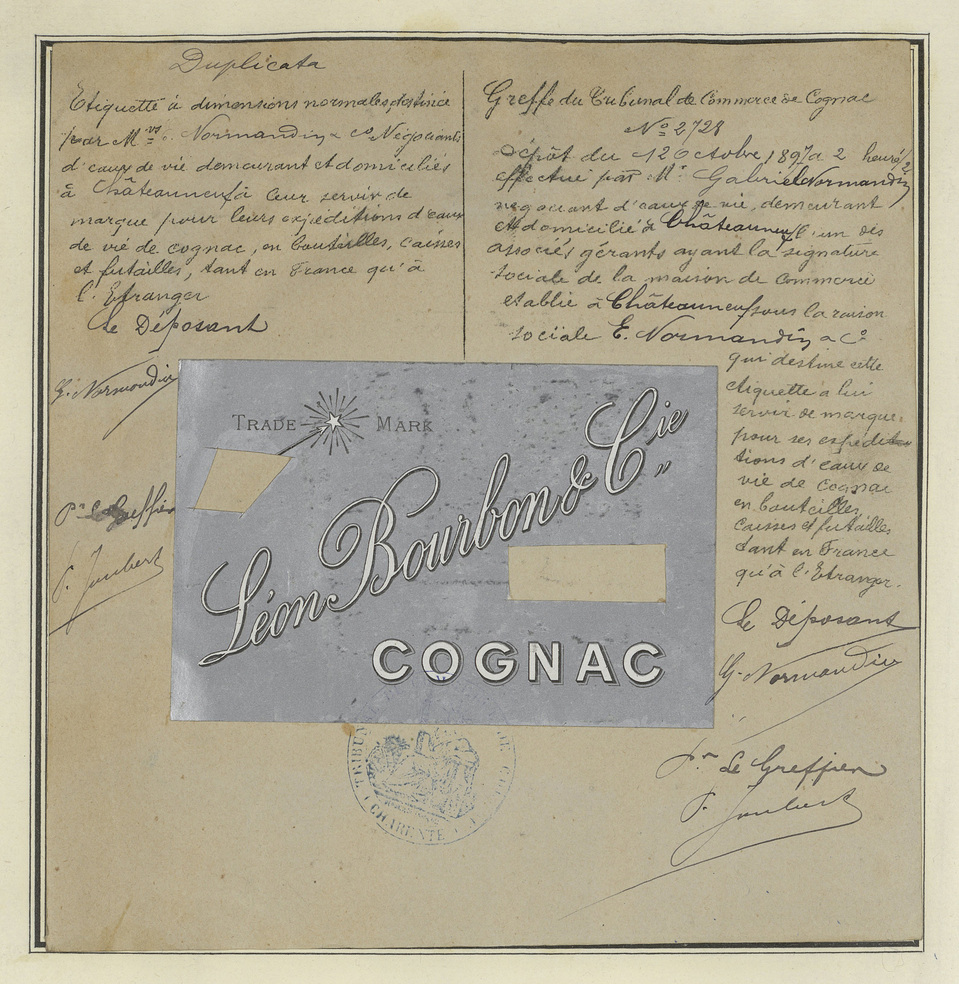 Duplicata
Etiquette à dimensions normales, destinée
par M.rs E. Normandin & Co Négociants
d'eaux de vie demeurant et domiciliés
à Châteauneuf à leur servir de
marque pour leurs expéditions d'eaux
de vie de cognac, en bouteilles, caisses
et futailles, tant en France qu'à
l'Etranger
Le Déposant
G. Normandin
Pr Le Greffier
P. Joubert
Greffe du Tribunal de Commerce de Cognac
No 2728
Dépôt du 12 Octobre 1897 à 2 heures 1/2
effectué par Mr Gabriel Normandin
négociant d'eaux de vie, demeurant
et domicilié à Châteauneuf l'un des
associés gérants ayant la signature
sociale de la maison de commerce
etablie à Châteauneuf sous la raison
sociale E. Normandin & Co
qui destine cette
étiquette à lui
servir de marque
pour ses expédi-
tions d'eaux de
vie de Cognac
en bouteilles,
caisses et futailles
tant en France
qu'à l'Etranger.
Le Déposant
G. Normandin
Pr Le Greffier
P. Joubert
TRADE MARK
Léon Bourbon & Cie
COGNAC
TRIBUN
CHARENTE